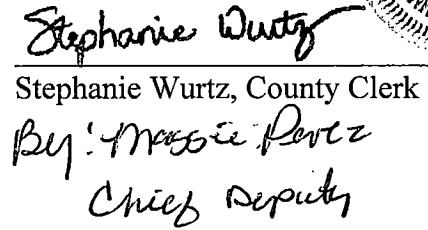 Stephanie Wurtz
Stephanie Wurtz, County Clerk
By: Maggie Perez
Chief Deputy